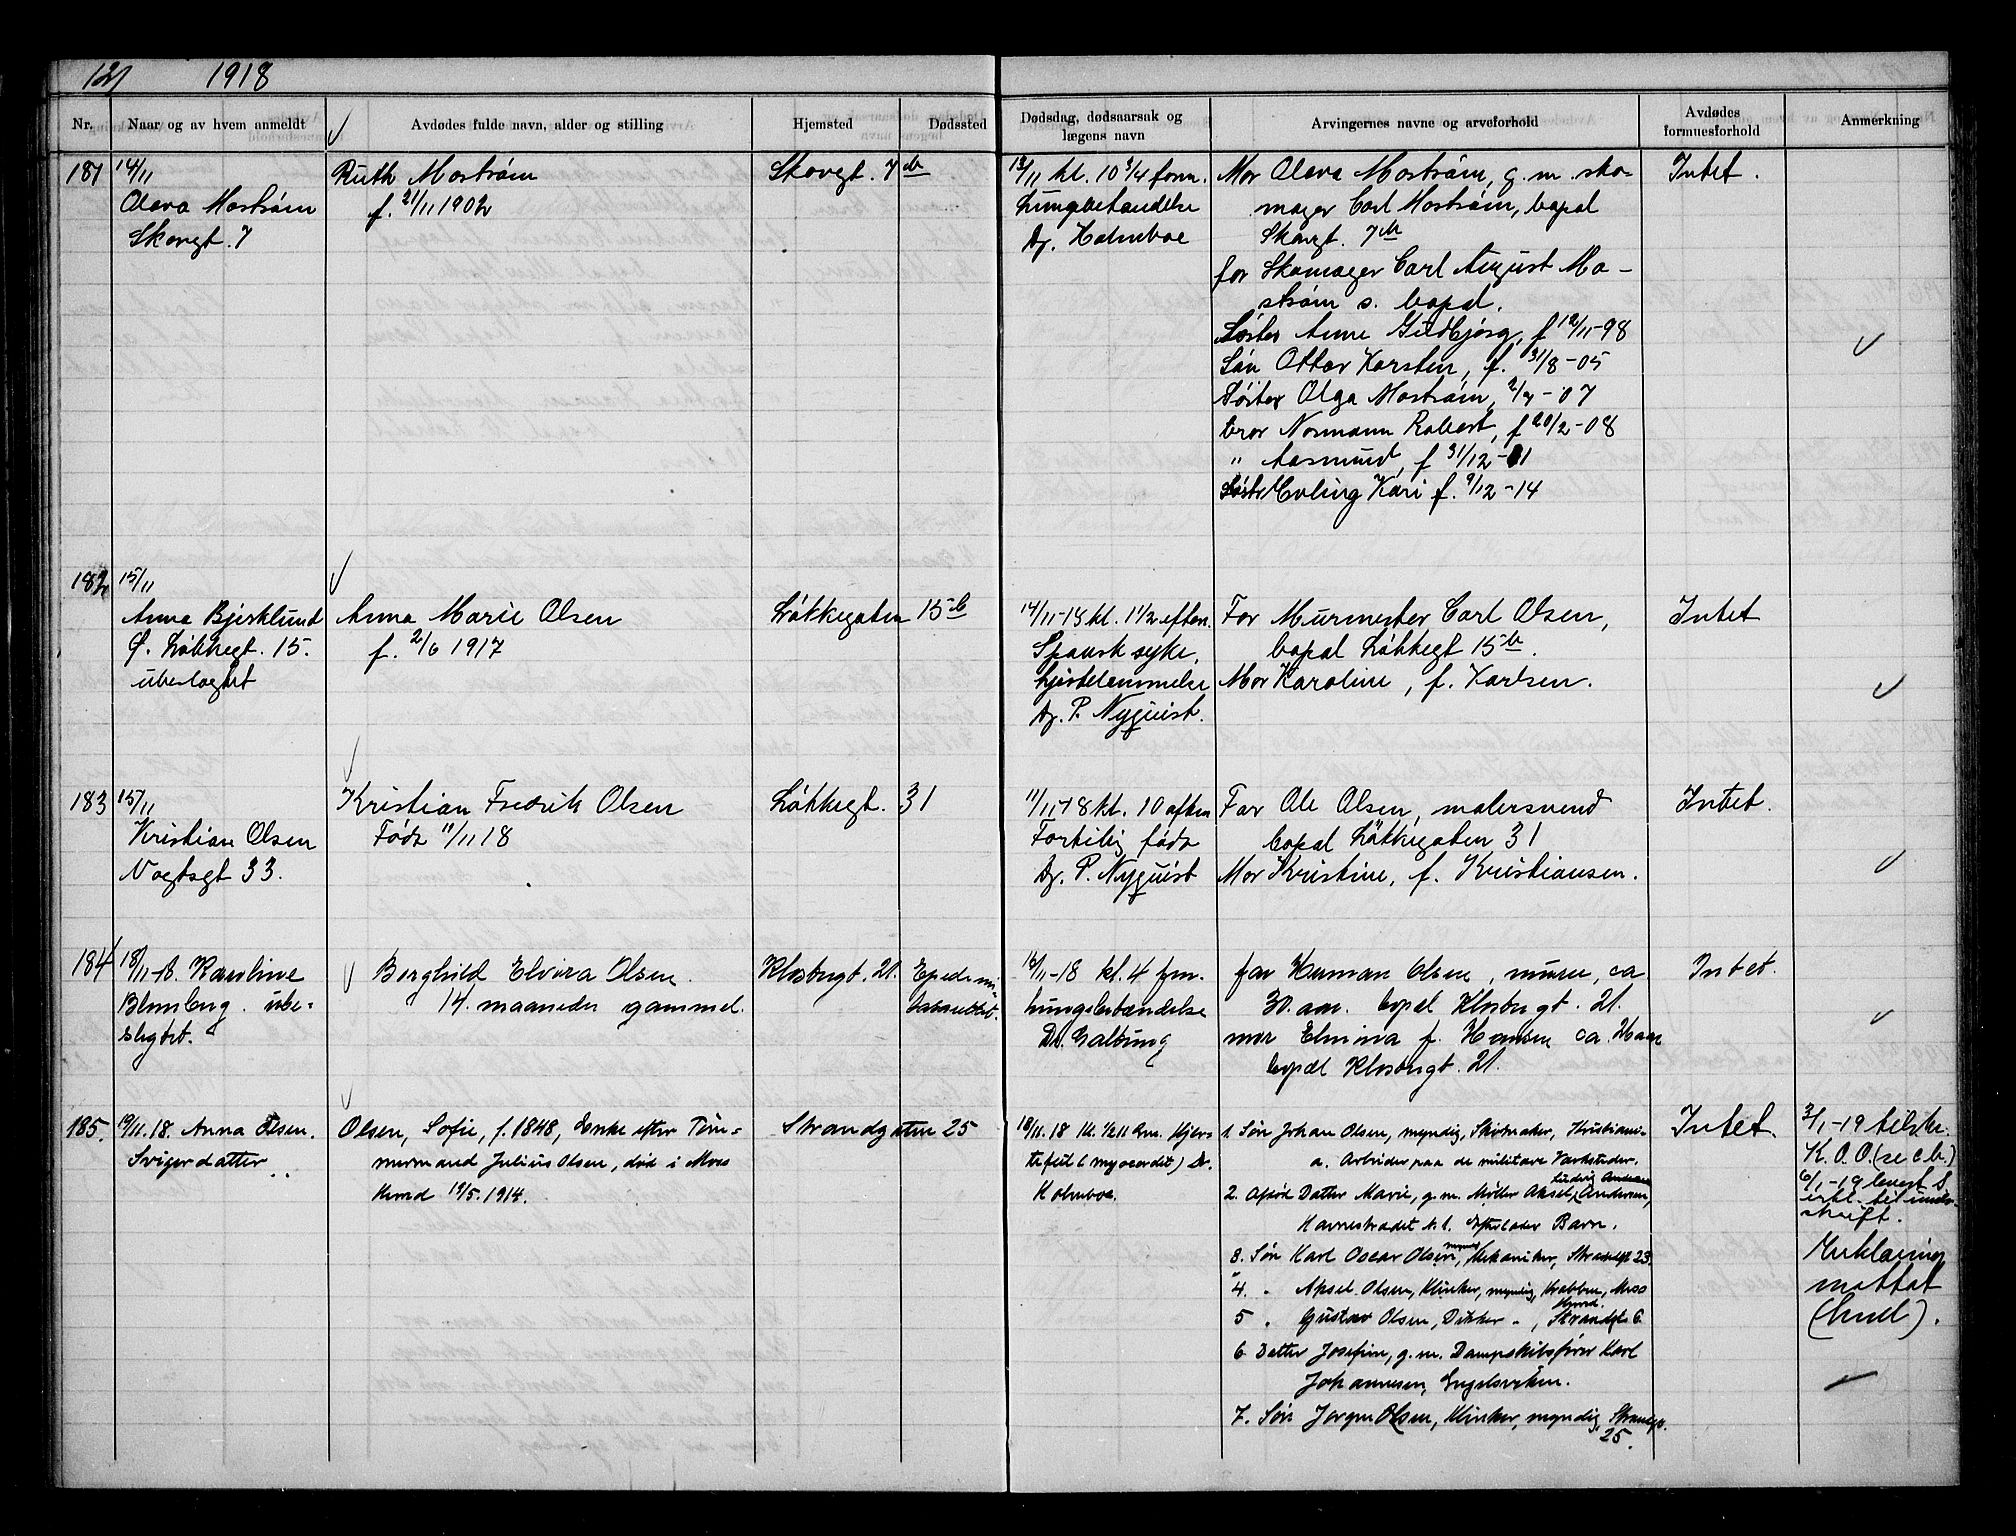 121 1918
Nr. Naar og av hvem anmeldt Avdødes fulde navn, alder og stilling Hjemsted Dødssted Dødsdag, dødsaarsak og lægens navn Arvingernes navne og arveforhold Avdødes formuesforhold Anmerkning
181 14/11
Olava Mostrøm
Skovgt. 7
Ruth Mostrøm
f. 21/11 1902
Skovgt. 7 b
13/11 kl. 10 3/4 form.
Lungebetændelse
Dr. Holmboe
Mor Olava Mostrøm, g. m. sko-
mager Carl Mostrøm, bopal
Skovgt. 7b
far Skomager Carl August Mo-
strøm s. bopal.
Søster Anne Guldbjørg, f 12/11-98
Søn Ottar Karsten, f. 31/8-05
Søster Olga Mostrøm, 2/7-07
bror Normann Robert, f 20/2-08
" Aasmund, f 31/12-11
Søster Evling Kari f. 9/12-14
Intet.
182 15/11
Anna Bjerklund
Ø. Løkkegt. 15.
ubeslagtet
Anna Marie Olsen
f. 2/6 1917
Løkkegaten 15 b
14/11-18 kl. 1 1/2 efterm.
Spansk syke,
hjertelammelse
Dr. P. Nyquist.
Far Murmester Carl Olsen,
bopal Løkkegt 15 b.
Mor Karoline, f. Karlsen.
Intet
183 15/11
Kristian Olsen
Vogtsgt 33.
Kristian Fredrik Olsen
Født 11/11 18
Løkkegt. 31
11/11-18 kl. 10 aften
Fortilig født
Dr. P. Nyquist
Far Ole Olsen, malersvend
bopal Løkkegaten 31
Mor Kristine, f. Kristiansen.
Intet.
184 18/11-18. Karoline
Blomberg. ube-
slegtet.
Borghild Elvira Olsen.
14. maaneder gammel.
Klostergt. 21. Epidemi-
lasarettet.
16/11-18 kl. 4 fm.
Lungebetændelse
Dr. Galtung
far Herman Olsen, murer, ca
30. aar. bopæl Klostergt. 21.
mor Elvira f. Hansen ca.
bopæl Klostergt. 21.
Intet.
185. 19/11.18. Anna Olsen.
Svigerdatter
Olsen, Sofie, f. 1848, Enke efter Tøm-
mermand Julius Olsen, død i Moss
19/5.1914.
Strandgaten 25
18/11.18 Kl. 1/2 11 fm. Hjer-
tefeil (myocardit) Dr.
Holmboe.
1. Søn Johan Olsen, myndig, Skomaker, Kristiani-
a. Arbeider paa de militære Værksteder.
2. Afdød Datter Marie, g. m. Møller Aksel Andersen,
Havnestrædet n. 1. Efterlader Barn.
3. Søn Karl Oscar Olsen, Mekaniker, Strandgt 23.
4. " Aksel Olsen, Klinker, myndig, Krabben, Moss
5 " Gustav Olsen, Dikker ", Strandgt 6.
6 Datter Josefine, g. m. Dampskibsfører Karl
Johannesen, Engelsviken.
7. Søn Jørgen Olsen, Klinker, myndig, Strandgt.
25.
Intet.
3/1-19 tilskr.
K. O. O. (se c.b.)
6/1-19 levert S.
erkl. til under-
skrift.
Erklæring
mottat
(hul).